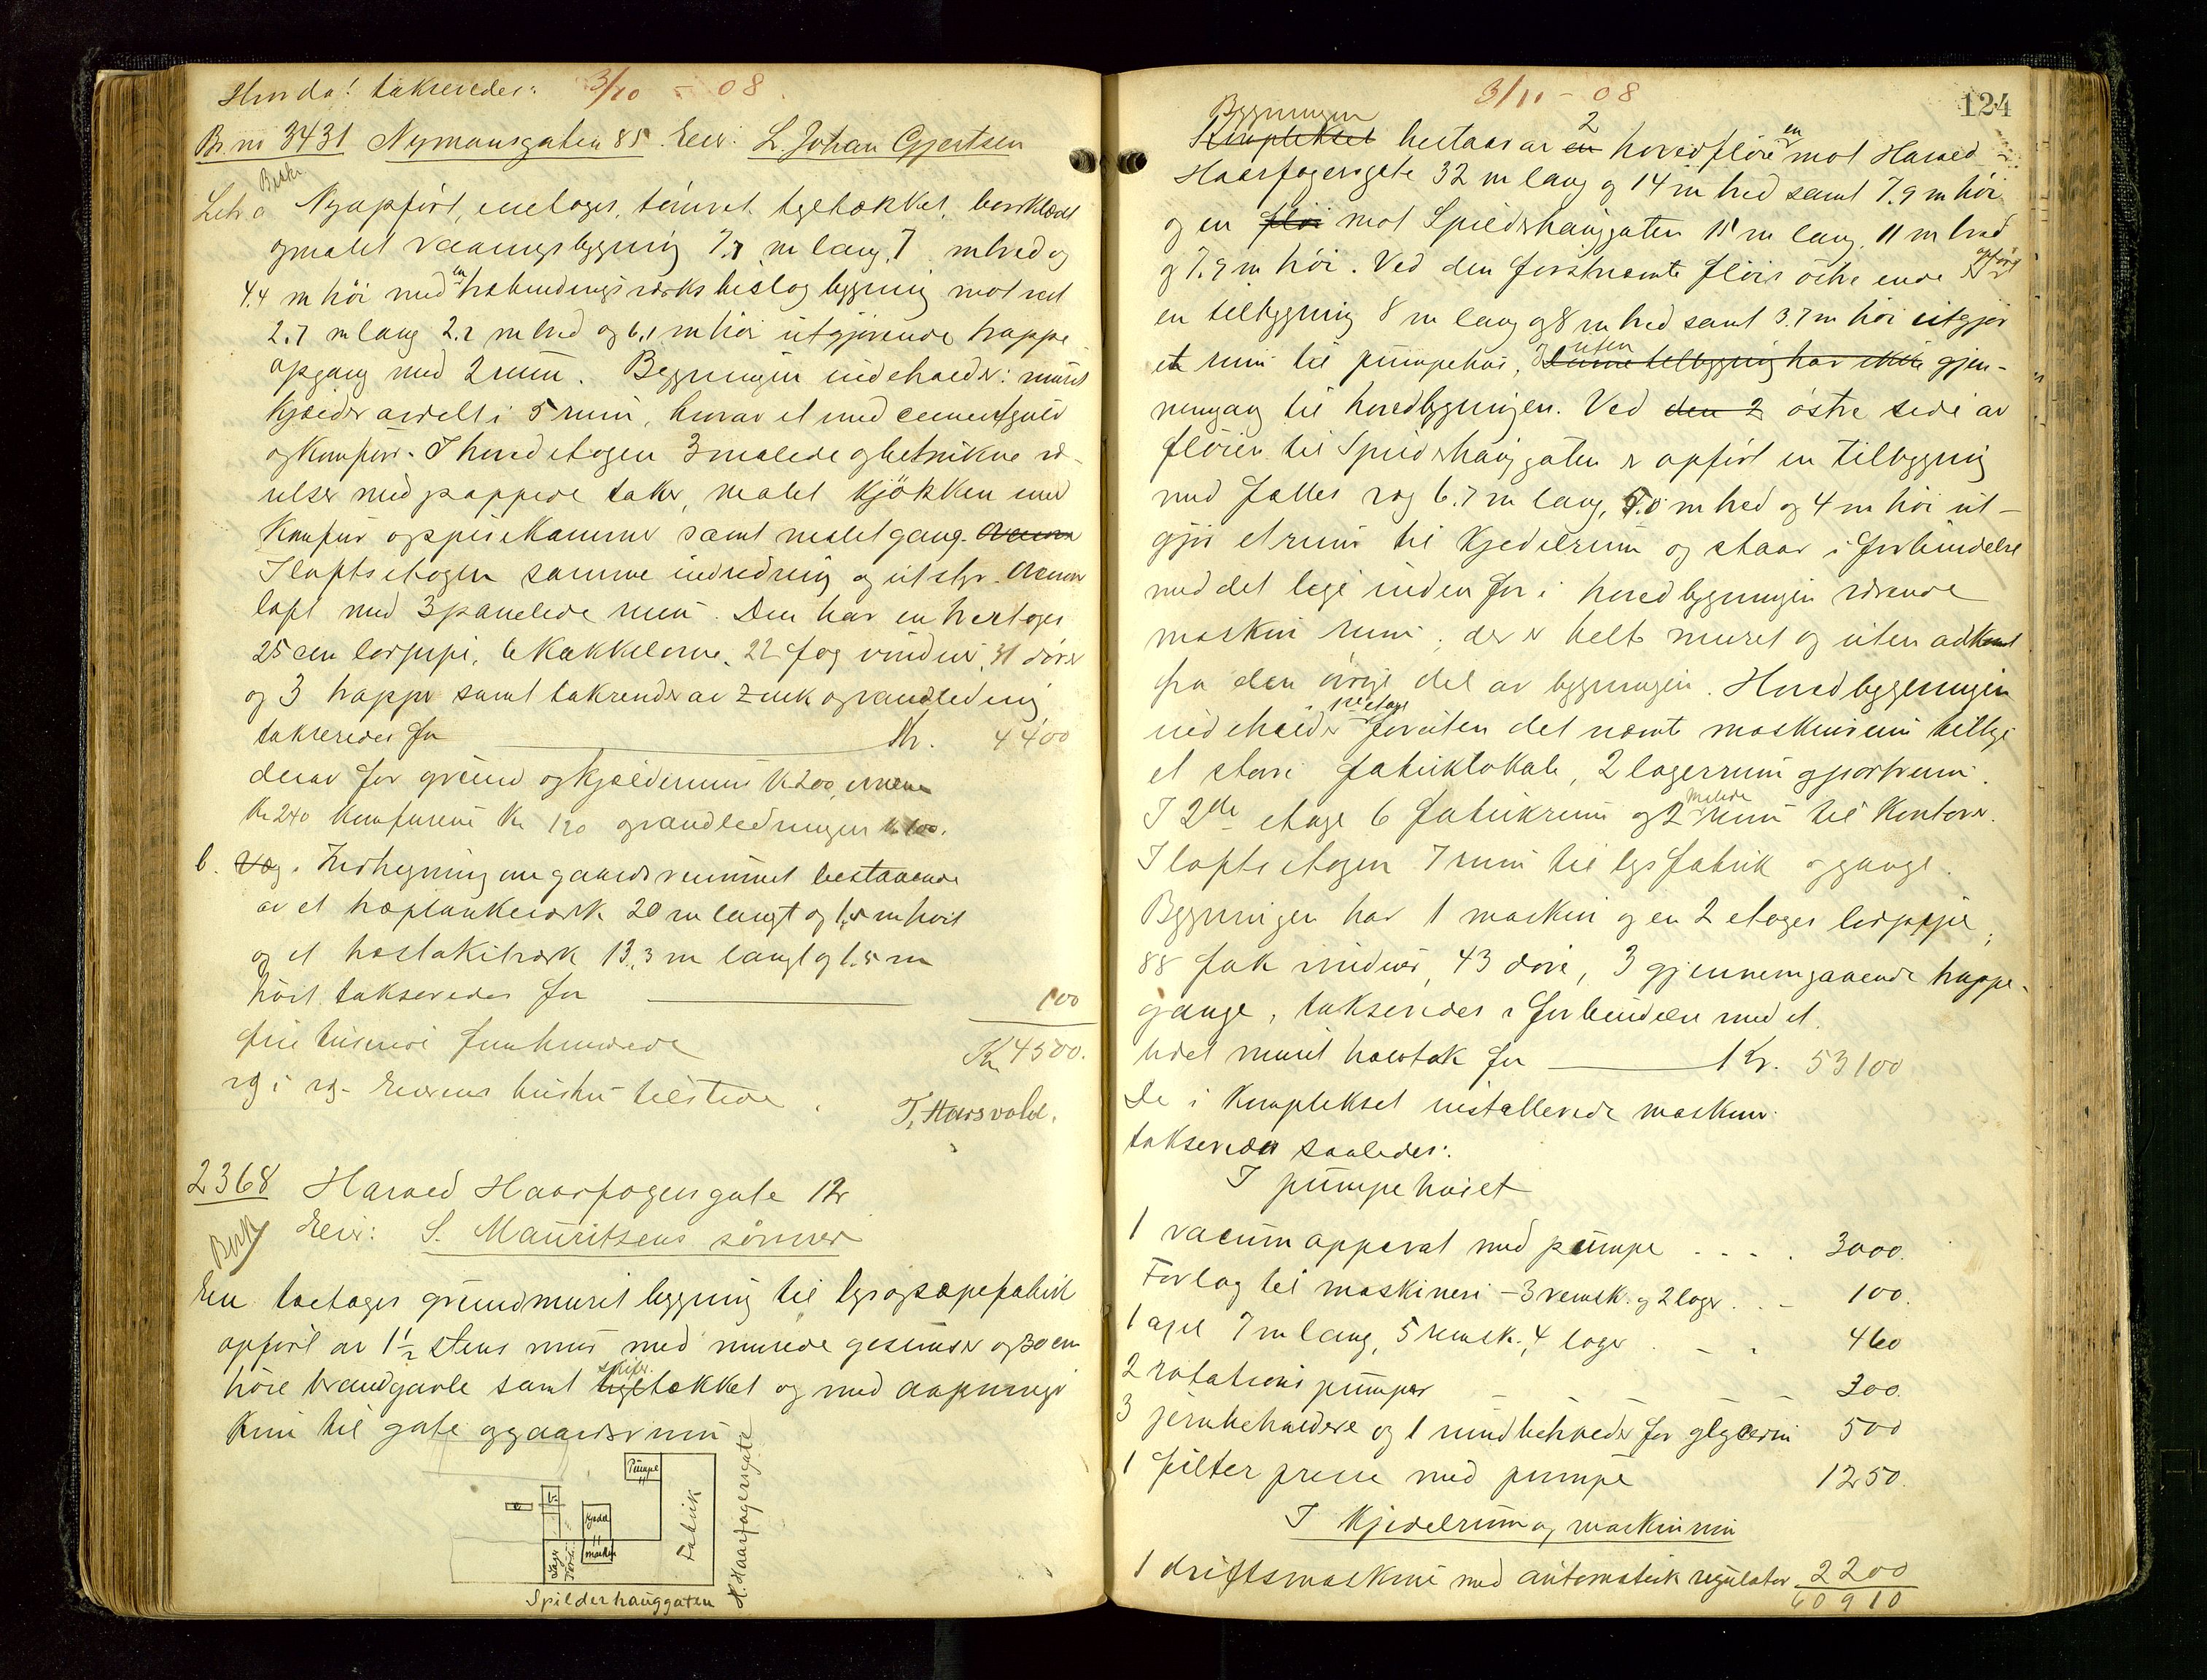 Hvorda! takseredes: 3/10 - 08.
Br. nr 3431 Nymansgaten 85. Eier: L. Johan Gjertsen
Beskr
Litr a Nyopført, enetages, tømret, tegltækket, bordklædt
og malet vaaningsbygning 7.7 m lang, 7 m bred og
4.4 m høi med en trebindingsverks bislagbygning mot vest
2.7 m lang 2.2 m bred og 6.1 m høi utgjørende trappe
opgang med 2 rum. Bygningen indeholder: muret
kjelder avdelt i 5 rum, hvorav et med cementgulv
og komfur. I hovedetagen 3 malede og betrukne væ-
relser med pappede taker, malet kjøkken med
komfur og spisekammer samt malet gang.
I loftsetagen samme indredning og utstyr.
loft med 3 panelede rum. Den har en tretages
25 cm lerpipe, 6 kakkelovne, 22 fag vinduer, 31 dører
og 3 trapper samt takrender av zink og vandledning
takseredes for Kr. 4400
derav for grund og kjelderrum kr 200, ovnene
kr 240 komfurene kr 120 og vandledningen kr 100.
b. Væg. Indhegning om gaardsrummet bestaaende
av et træplankeverk 20 m langt og 1,5 m høit
og et træstakitverk 13,3 m langt og 1.5 m
høit, takseredes for 100
fire tusende femhundrede Kr 4500.
rg i rg. Eierens hustru tilstede.
T. Harsvold.
2368 Harald Haarfagersgate 12
Besk Eier: S. Mauritzens sønner
En toetages grundmuret bygning til lys og sæpefabrik
opført av 1½ stens mur med murede gesimser og 30 cm
skifer
høie brandgavle samt tegltækket og med aapninger
kun til gate og gaardsrum
Pumpe
Fabrik
Kjedel
maskin
Lager
H. Haarfagersgate
Spilderhauggaten
3/10 - 08
124
Bygningen
Komplekset bestaar av en 2 hovedfløie en mot Harald
Haarfagersgate 32 m lang og 14 m bred samt 7.9 m høi
og en fløi mot Spilderhauggaten 15 m lang, 11 m bred
og 7.9 m høi. Ved den førstnævnte fløis østre ende er opført
en tilbygning 8 m lang og 8 m bred samt 3.7 m høi utgjør
uten
et rum til pumpehus, Denne tilbygning har ikke gjen-
nemgang til hovedbygningen. Ved den 2 østre side av
fløien til Spilderhauggaten er opført en tilbygning
med fælles væg 6.7 m lang, 5.0 m bred og 4 m høi ut-
gjør et rum til kjedelrum og staar i forbindelse
med det lige indenfor i hovedbygningen værende
maskinrum, der er helt muret og uten adkomst
fra den øvrige del av bygningen. Hovedbygningen
1ste etage
indeholder foruten det nævnte maskinrum tillige
et stort fabriklokale, 2 lagerrum og portrum.
malede
I 2den etage 6 fabrikrum og 2 rum til kontorer.
I loftsetagen 7 rum til lysfabrik og gange.
Bygningen har 1 maskin og en 2 etages lerpipe,
88 fak vinduer, 43 døre, 3 gjennemgaaende trappe-
gange, takseredes i forbindelse med et
litet muret halvtak for Kr. 53100
De i komplekset installerede maskiner
takseredes saaledes:
I pumpehuset
1 vacumapparat med pumpe 3000.
Forlag til maskineri - 3 remsk. og 2 lager 100.
1 axel 7 m lang, 5 remsk., 4 lager 460
2 rotations pumper 300.
3 jernbeholdere og 1 rundbeholder for glycerin 500
1 filterpresse med pumpe 1250.
I kjedelrum og maskinrum
1 driftsmaskine med automatisk regulator 2200
60910